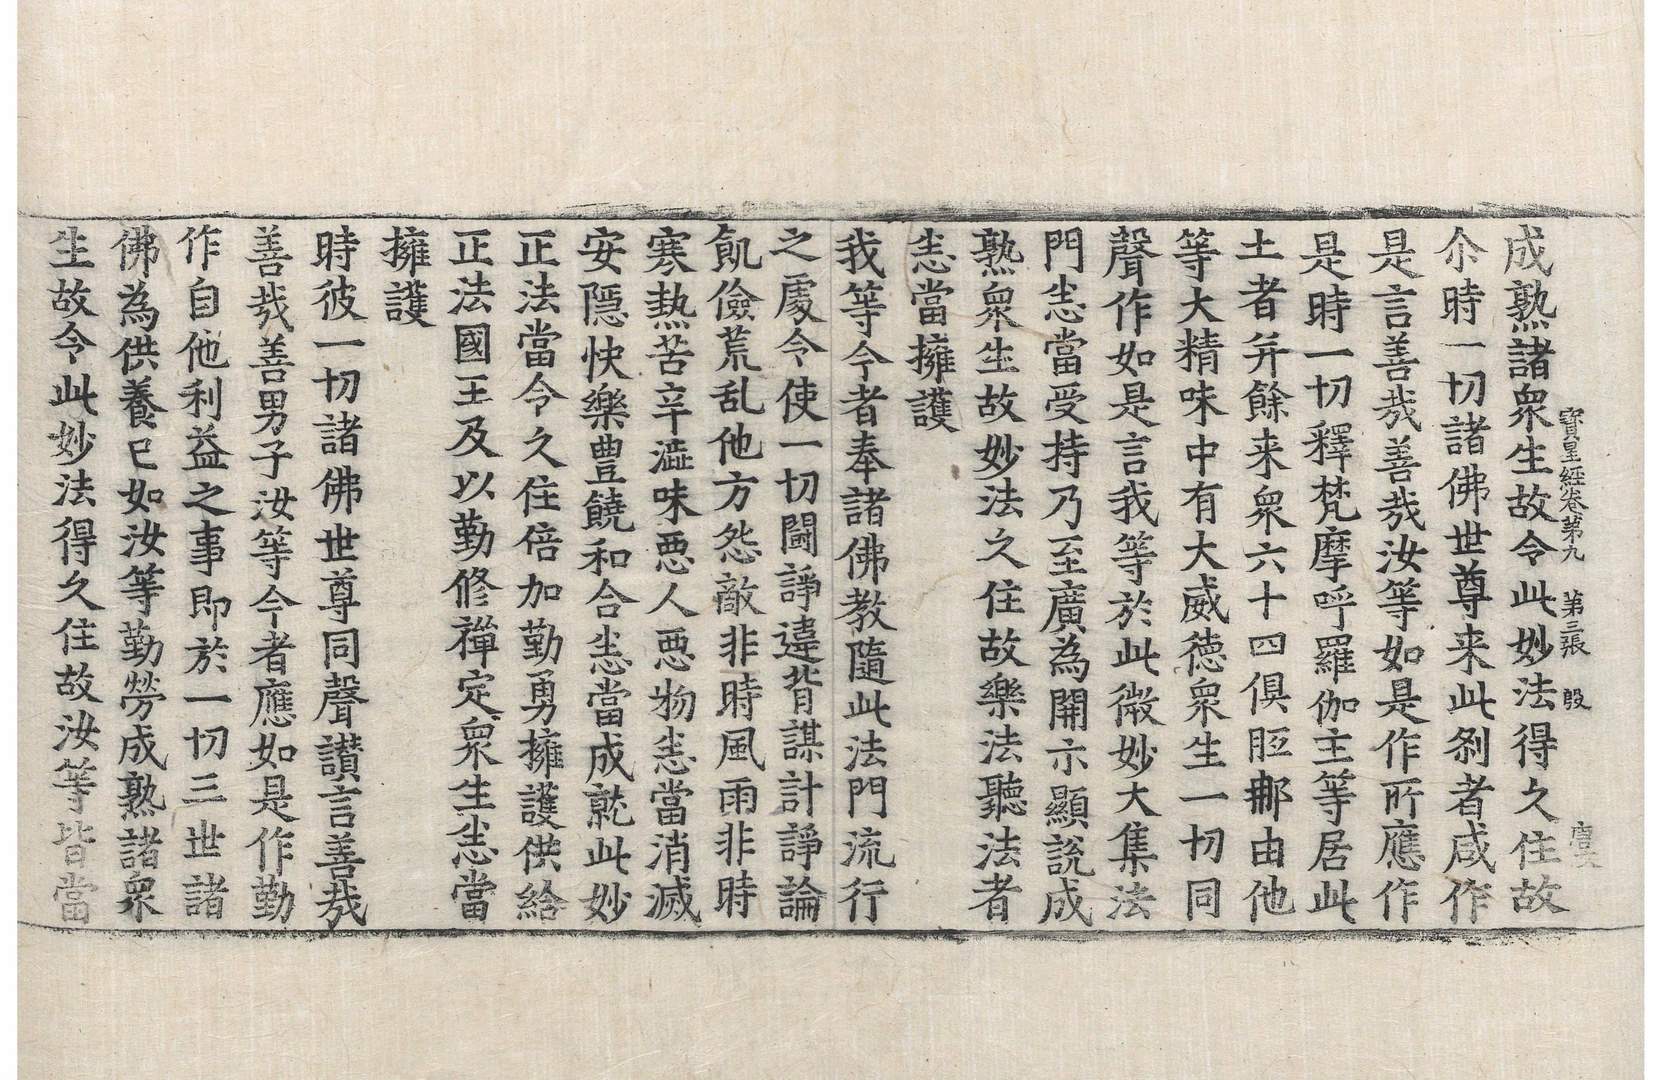 寳星經卷第九 第三張 殷
成熟諸衆生故令此妙法得久住故
尒時一切諸佛世尊来此剎者咸作
是言善㢤善㢤汝等如是作所應作
是時一切釋梵摩呼羅伽主等居此
土者并餘来衆六十四俱胝那由他
等大精味中有大威德衆生一切同
聲作如是言我等於此微妙大集法
門悉當受持乃至廣為開示顯說成
熟衆生故妙法久住故樂法聽法者
悉當擁護
我等今者奉諸佛教隨此法門流行
之處令使一切鬪諍違背謀計諍論
飢儉荒乱他方怨敵非時風雨非時
寒熱苦辛澁味悪人悪物悉當消滅
安隱快樂豊饒和合悉當成就此妙
正法當令久住倍加勤勇擁護供給
正法國王及以勤修禪定衆生悉當
擁護
時彼一切諸佛世尊同聲讃言善㢤
善㢤善男子汝等今者應如是作勤
作自他利益之事即於一切三世諸
佛為供養已如汝等勤勞成熟諸衆
生故令此妙法得久住故汝等皆當